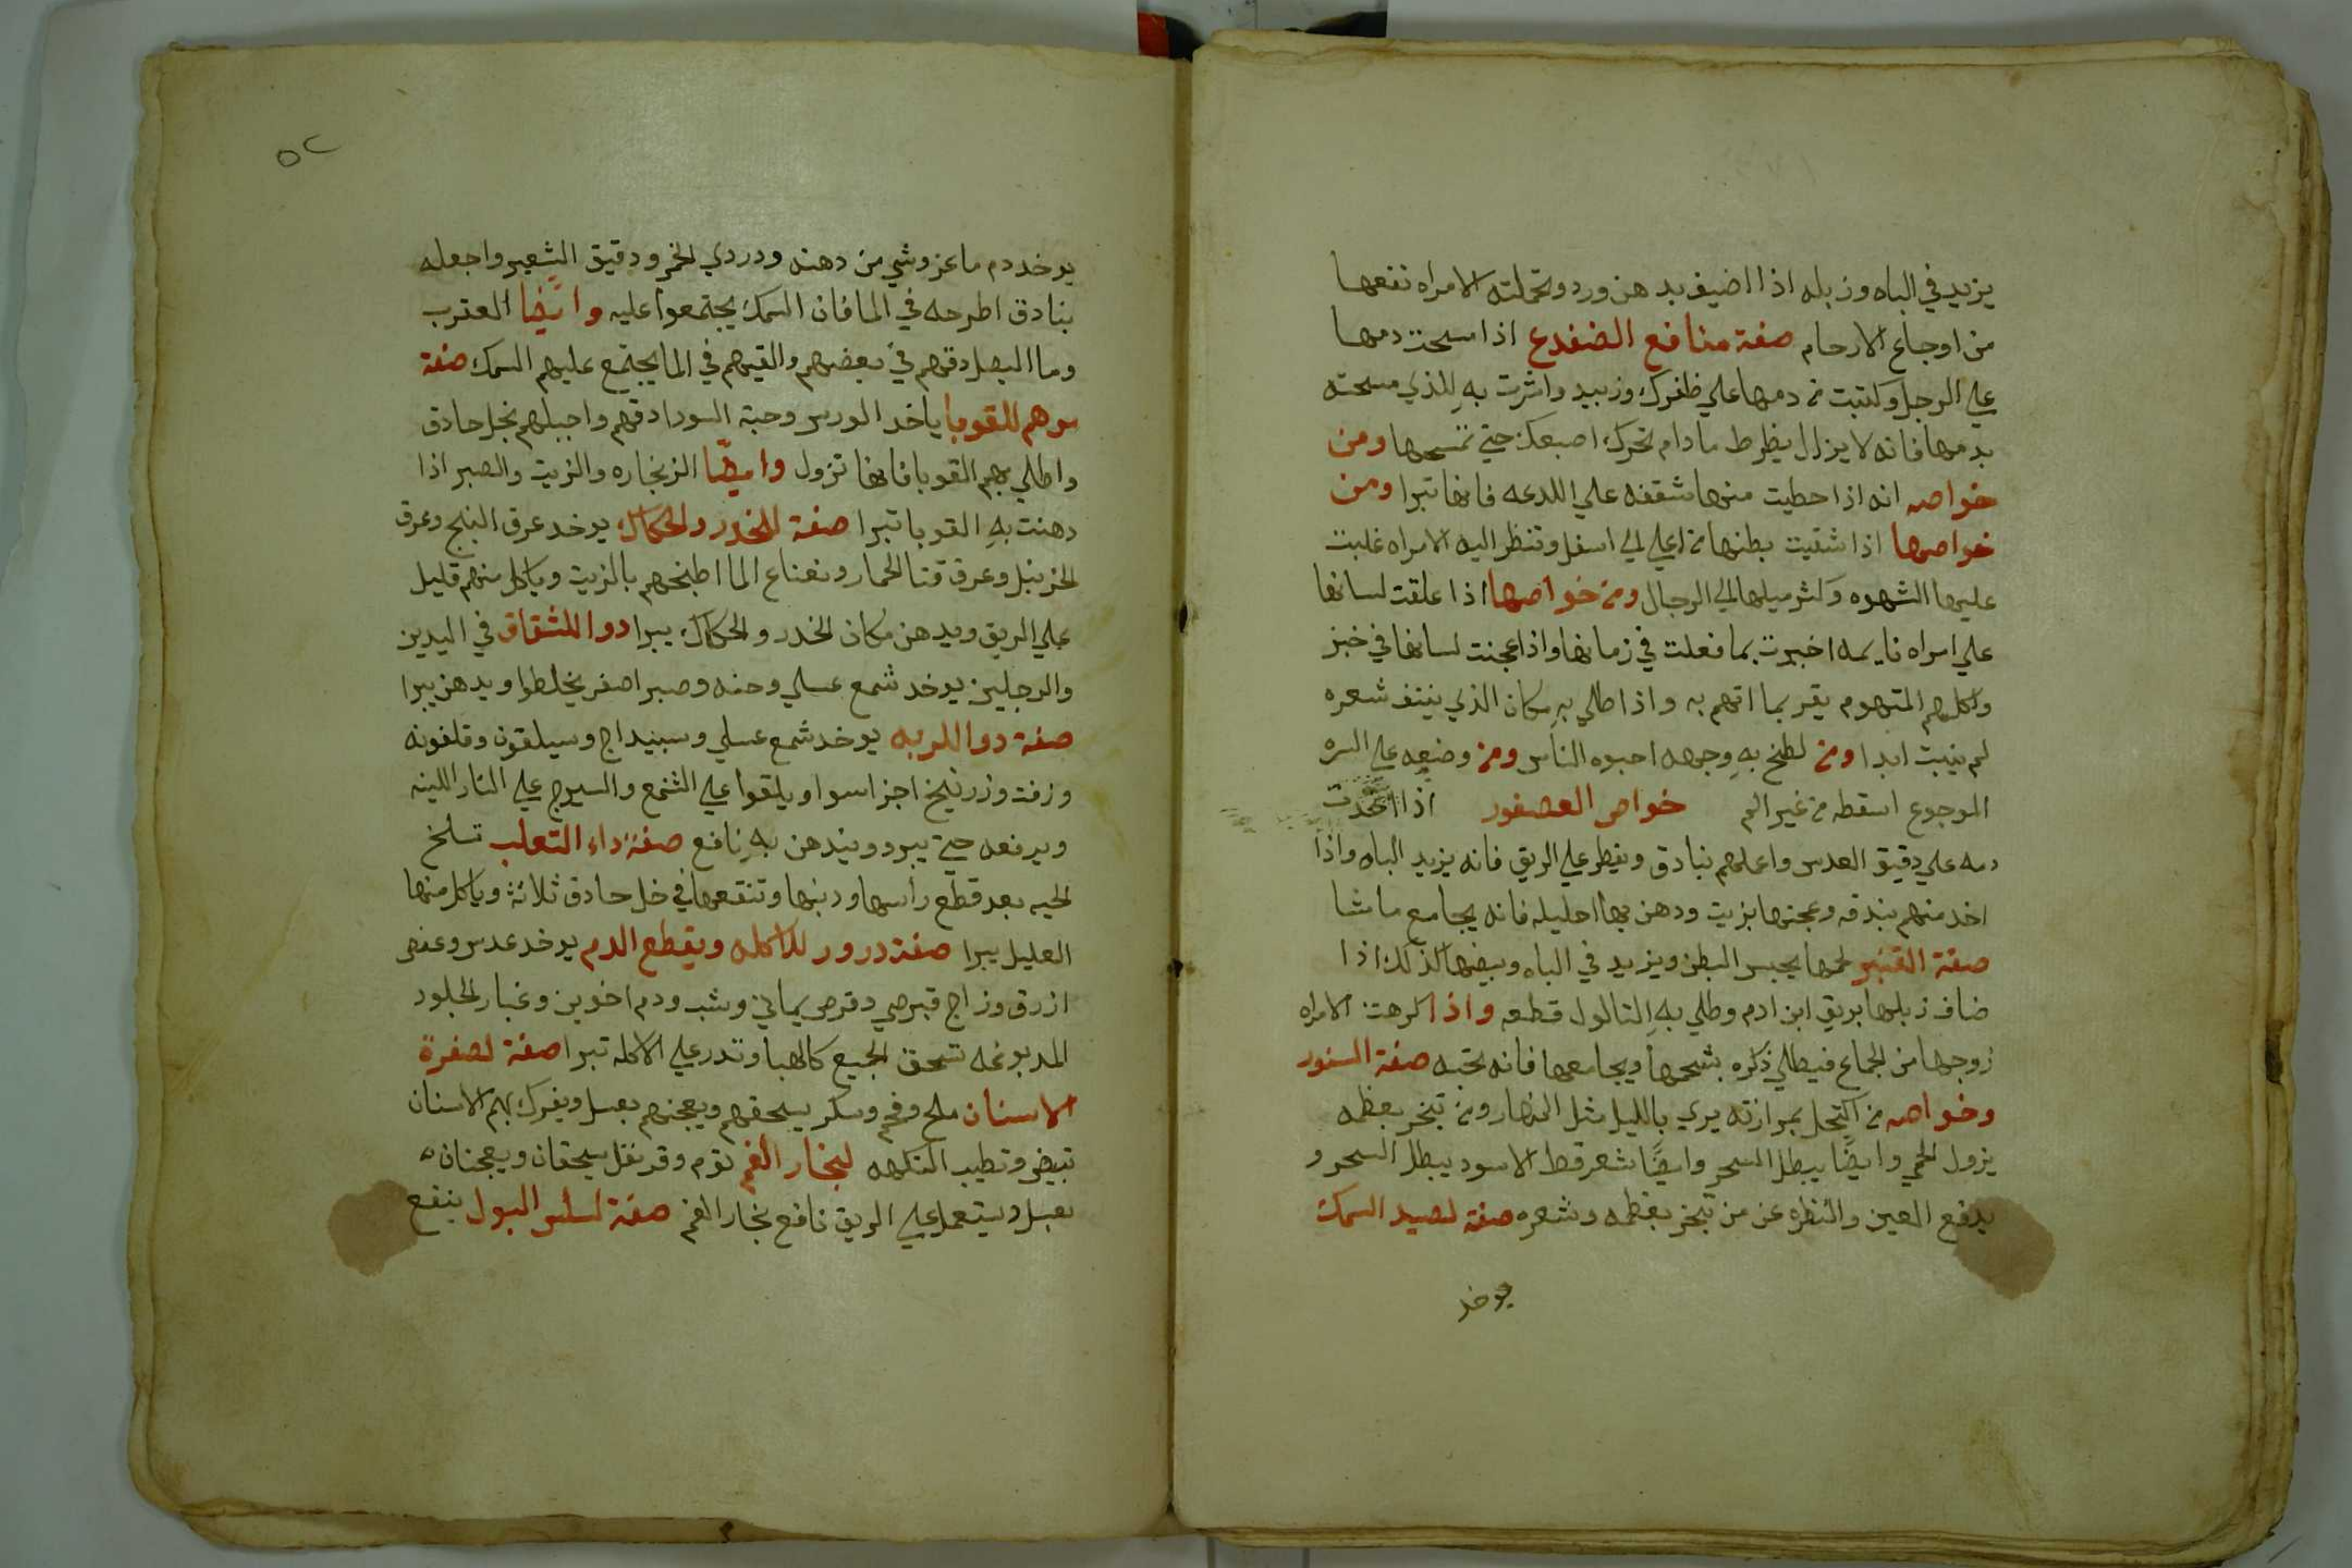 يزيد في الباه وزبله اذا اضيف بدهن ورد وتحملته الامراه نفعها
من اوجاع الارحام صفة منافع الضفدع اذا مسحت دمها
علي الرجل وكتبت من دمها علي ظفرك وزبيد واشرت به للذي مسحته
بدمها فانه لا يزال يظرط ما دام تحرك اصبعك حتي تمسحها ومن
خواصه انه اذا حطيت منها شقفه علي اللدعه فانها تبرا ومن
خواصها اذا شقيت بطنها من اعلي الي اسفل وتنظر اليه الامراه غلبت
عليها الشهوه وكثر ميلها الي الرجال ومن خواصها اذا علقت لسانها
علي امراه نايمه اخبرت بما فعلت في زمانها واذا عجنت لسانها في خبز
واكلهم المتهوم يقر بما اتهم به واذا طلي به مكان الذي ينتف شعره
لم ينبت ابدا ومن لطخ به وجهه احبوه الناس ومن وضعه علي السره
الموجوع اسقطه من غير الم خواص العصفور اذا اخدت
دمه علي دقيق العدس واعملهم بنادق ويفطر علي الريق فانه يزيد الباه واذا
اخد منهم بندقه وعجنها بزيت ودهن بها احليله فانه يجامع ما شا
صفة القنبر لحمها يحبس البطن ويزيد في الباه وبيضها كذلك اذا
ضاف زبلها بريق ابن ادم وطلي به التالول قطعه واذا كرهت الامراه
زوجها من الجماع فيطلي ذكره بشحمها ويجامعها فانه تحبه صفة السنور
وخواصه من اكتحل بمرارته يري بالليل مثل النهار ومن تبخر بعظمه
يزول الحمي وايضًا يبطل السحر وايضًا شعر قط الاسود يبطل السحر و
يدفع العين والنظره عن من تبخر بعظمه وشعره صفة لصيد السمك
يوخد
٥٢
يوخد دم ماعز وشي من دهنه ودردي الخمر ودقيق الشعير واجعله
بنادق اطرحه في الما فان السمك يجتمعوا عليه وايضًا العقرب
وما البصل دقهم في بعضهم والقيهم في الما يجتمع عليهم السمك صفة
مرهم للقوبا ياخد الورس وحبة السودا دقهم واجبلهم بخل حادق
واطلي بهم القوبا فانها تزول وايضًا الزنجاره والزيت والصبر اذا
دهنت به القوبا تبرا صفة للخدر والحكاك يوخد عرق البنج وعرق
الخزنبل وعرق قتا الحمار ونعناع الما اطبخهم بالزيت وياكل منهم قليل
علي الريق ويدهن مكان الخدر والحكاك يبرا دوا للشقاق في اليدين
والرجلين يوخد شمع عسلي وحنه وصبر اصفر يخلطوا ويدهن يبرا
صفة دوا يوخد شمع عسلي وسبيداج وسيلقون وقلفونه
وزفت وزرنيخ اجزا سوا ويلقوا علي الشمع والسيرج علي النار اللينه
ويرفعه حتي يبرد ويندهن به نافع صفة داء التعلب تسلخ
الحيه بعد قطع رأسها ودنبها وتنقعها في خل حادق ثلاثة وياكل منها
العليل يبرا صفة درور للاكله ويقطع الدم يوخد عدس وعفص
ازرق وزاج قبرصي وقرص يماني وشب ودم اخوين وغبار الجلود
المدبوغه تسحق الجميع كالهبا وتدر علي الاكله تبرا صفة لصفرة
الاسنان ملح وفحم وسكر يسحقهم ويعجنهم بعسل ويفرك بهم الاسنان
تبيض وتطيب النكهه لبخار الفم توم وقرنفل يسحقان ويعجنان
بعسل ويستعمل علي الريق نافع بخار الفم صفة لسلس البول ينفع